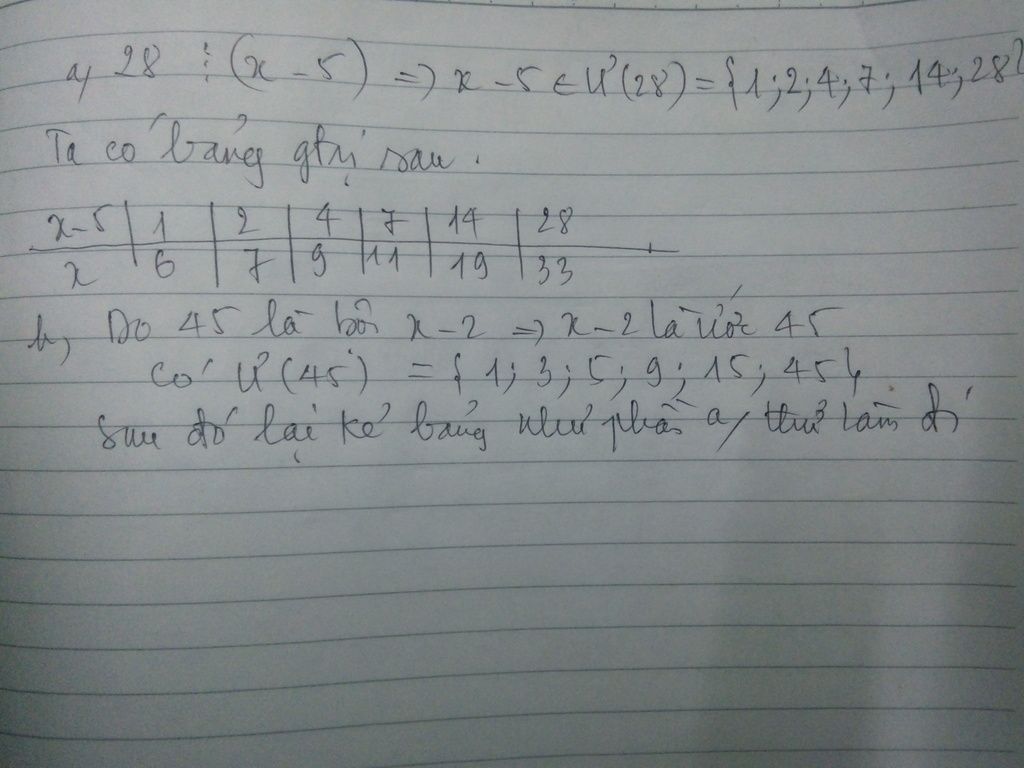 a, 28 ⋮ (x - 5) => x - 5 ∈ Ư(28) = {1; 2; 4; 7; 14; 28}
Ta có bảng gtrị sau.
x-5 | 1 | 2 | 4 | 7 | 14 | 28
x | 6 | 7 | 9 | 11 | 19 | 33
b, Do 45 là bội x - 2 => x - 2 là ước 45
Có Ư(45) = { 1; 3; 5; 9; 15; 45}
sau đó lại kẻ bảng như phần a, thử làm đi